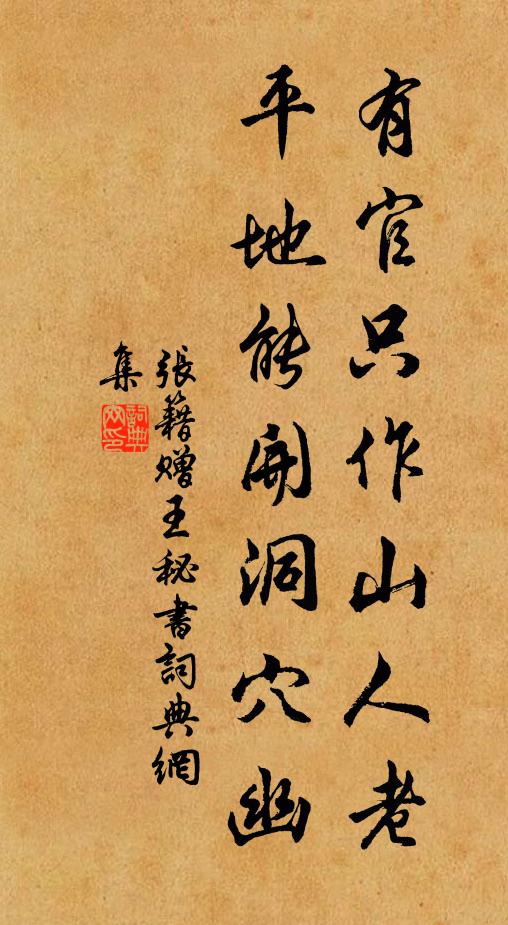 有官只作山人老
平地能開洞穴幽
張籍贈王秘書詞典網
集
詞典
网印